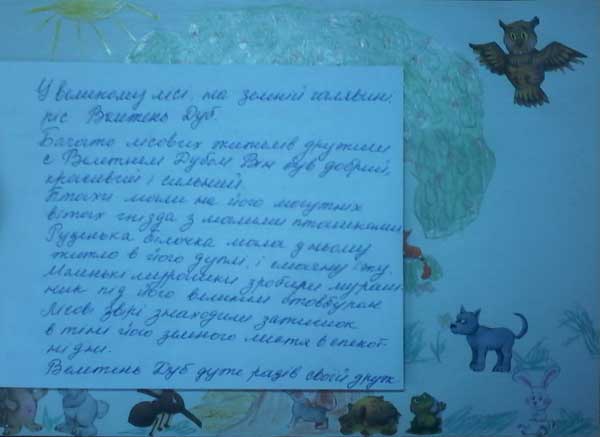 У великому лісі, на зеленій галявині
ріс Велитень Дуб.
Багато лісових жителів дружили
с Велетнем Дубом. Він був добрий,
красивий і сильний.
Птахи мали на його могутних
вітах гнізда з малими пташенятами
Руденька білочка мала з ньому
житло в його дуплі, і смачну їжу.
Маленькі мурашки зробили мураш
ник під його великим стовбуром
Лісові звірі знаходили затишок
в тіні його зеленого листя в спекот-
ні дни.
Велетень Дуб дуже радів своїй дружбі